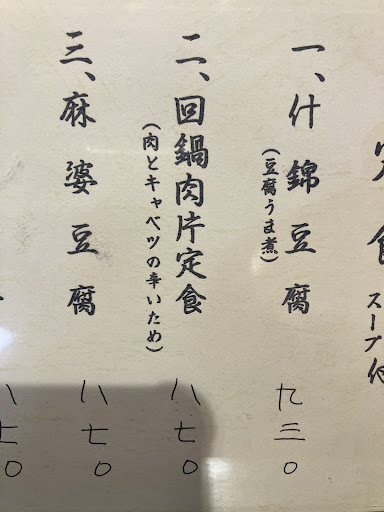 定食
スープ付
一、什錦豆腐
(豆腐うま煮)
九三〇
二、回鍋肉片定食
(肉とキャベツの辛いため)
八七〇
三、麻婆豆腐
八七〇
八七〇